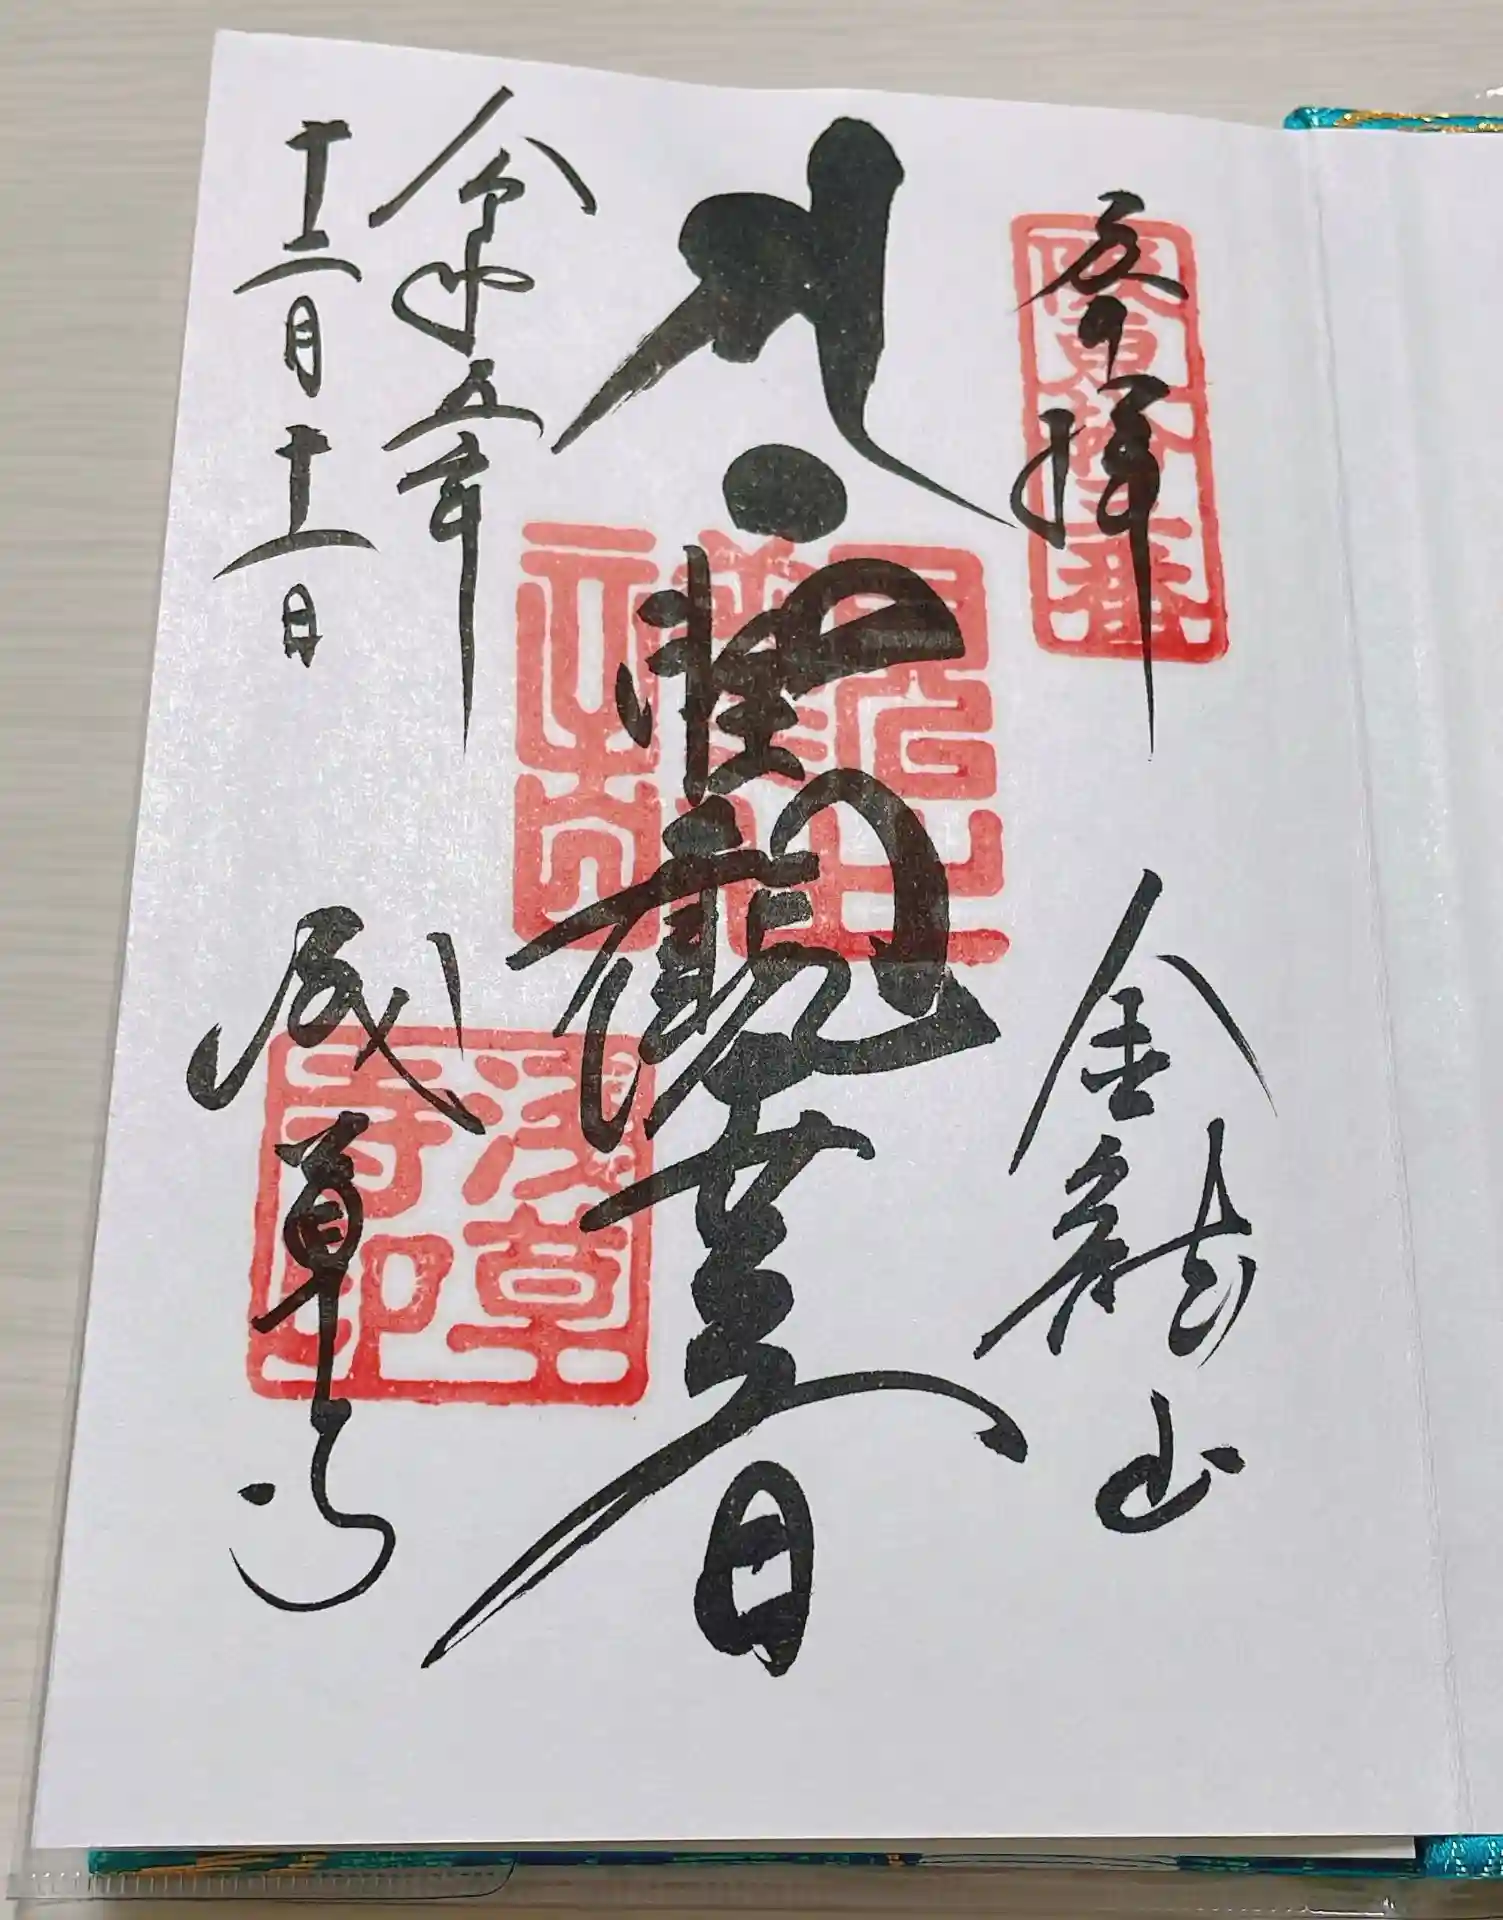 奉拝
坂東拾三番
金龍山
聖観世音
令和五年
十二月十二日
浅草寺
浅草寺印